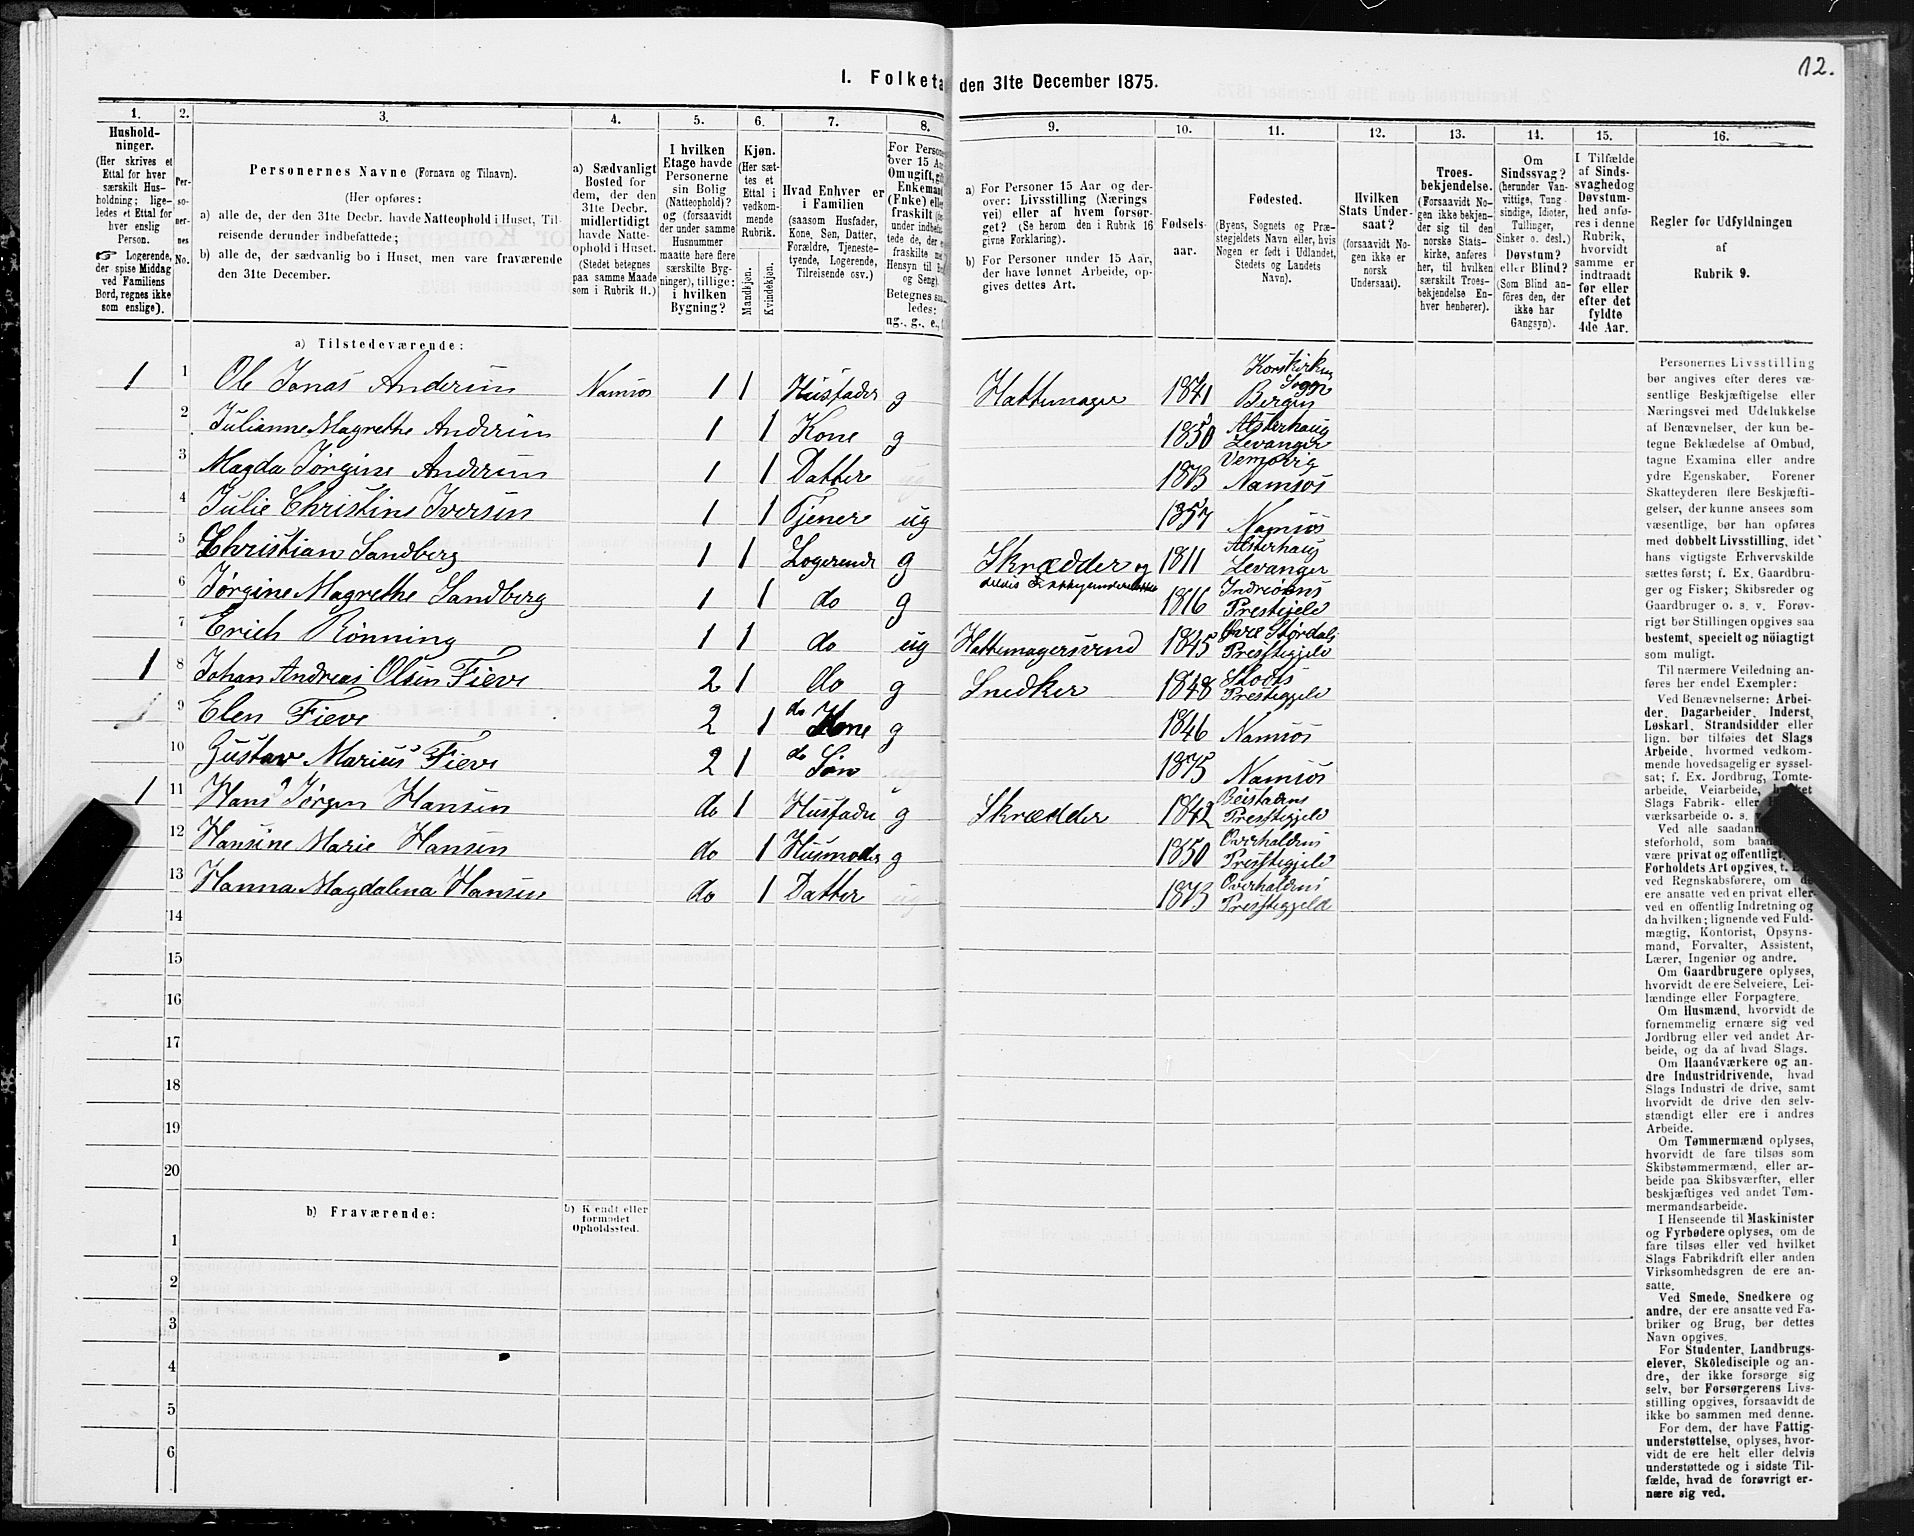 12.
I. Folketa den 31te December 1875.
1. 2. 3. 4. 5. 6. 7. 8. 9. 10. 11. 12. 13. 14. 15. 16.
Hushold-
ninger.
(Her skrives et
Ettal for hver
særskilt Hus-
holdning; lige-
ledes et Ettal for
hver enslig
Person.
☞ Logerende,
der spise Middag
ved Familiens
Bord, regnes ikke
som enslige).
Per-
so-
ner-
nes
No.
Personernes Navne (Fornavn og Tilnavn).
(Her opføres:
a) alle de, der den 31te Decbr. havde Natteophold i Huset, Til-
reisende derunder indbefattede;
b) alle de, der sædvanlig bo i Huset, men vare fraværende
den 31te December.
a) Sædvanligt
Bosted for
dem, der den
31te Decbr.
midlertidigt
havde Natte-
ophold i Huset.
(Stedet betegnes
paa samme Maade
som i Rubrik 11.)
I hvilken
Etage havde
Personerne
sin Bolig
(Natteophold)?
og (forsaavidt
der under samme
Husnummer
maatte høre flere
særskilte Byg-
ninger), tillige:
i hvilken
Bygning?
Kjøn.
(Her sæt-
tes et
Ettal i
vedkom-
mende
Rubrik.
Mandkjøn.
Kvindekjøn.
Hvad Enhver er
i Familien
(saasom Husfader,
Kone, Søn, Datter,
Forældre, Tjeneste-
tyende, Logerende,
Tilreisende osv.)
For Persone
over 15 Aa
Om ugift, gif
Enkemand
(Enke) elle
fraskilt
under indbefat-
tede de, der e
fraskilte med
Hensyn til B
og Seng).
Betegnes saa
ledes:
ug., g., e., f
a) For Personer 15 Aar og der-
over: Livsstilling (Nærings
vei) eller af hvem forsør-
get? (Se herom den i Rubrik 16
givne Forklaring).
b) For Personer under 15 Aar,
der have lønnet Arbeide, op-
gives dettes Art.
Fødsels-
aar.
Fødested.
(Byens, Sognets og Præ-
stegjeldets Navn eller, hvis
Nogen er født i Udlandet,
Stedets og Landets
Navn).
Hvilken
Stats Under-
saat?
(forsaavidt No-
gen ikke er
norsk
Undersaat).
Troes-
bekjendelse.
(Forsaavidt No-
gen ikke bekjen-
der sig til den
norske Stats-
kirke, anføres
her, til hvilken
særskilt Troes-
bekjendelse En-
hver henhører).
Om
Sindssvag?
(herunder Van-
vittige, Tung
sindige, Idioter,
Tullinger,
Sinker o. desl.)
Døvstum?
eller Blind?
(Som Blind an-
føres den, der
ikke har
Gangsyn).
I Tilfælde
af Sinds-
svaghed og
Døvstum-
hed anfø-
res i denne
Rubrik,
hvorvidt
samme er
indtraadt
før eller
efter det
fyldte
4de Aar.
Regler for Udfyldningen
af
Rubrik 9.
a) Tilstedeværende:
1 1 Ole Jonas Andersen Namsos 1 1 Husfader g Hattemager 1841 Korskirkens Sogn Bergen
2 Julianne Magrethe Andersen 1 1 Kone g 1850 Alsterhaug Levanger
3 Magda Jørgine Andersen 1 1 Datter ug 1873 Namsos
4 Julie Christine Iversen 1 1 Tjener ug 1857 Namsos
5 Christian Sandberg 1 1 Logerende g Skrædder og 1811 Alsterhaug Levanger
6 Jørgine Magrethe Sandberg 1 1 do g 1816 Inderøens Prestegjeld
7 Erich Rønning 1 1 do ug Hattemagersvend 1845 Øvre Størdals Prestegjeld
1 8 Johan Andreas Olsen Fieve 2 1 do g Snedker 1848 Stods Prestegjeld
9 Elen Fieve 2 1 do Kone g 1846 Namsos
10 Gustav Marius Fieve 2 1 do Søn 1875 Namsos
1 11 Hans Jørgen Hansen do 1 Husfader g Skrædder 1842 Beistadens Presstegjeld
12 Hansine Marie Hansen do 1 Husmoder g 1850 Overhaldens Presstegjeld
13 Hanna Magdalena Hansen do 1 Datter ug 1873 Overhaldens Presstegjeld
14
15
16
17
18
19
20
b) Fraværende:
b) Kjendt eller
formodet
Opholdssted.
1
2
3
4
5
6
Personernes Livsstilling
bør angives efter deres væ-
sentlige Beskjæftigelse eller
Næringsvei med Udelukkelse
af Benævnelser, der kun be-
tegne Beklædelse af Ombud,
tagne Examina eller andre
ydre Egenskaber. Forener
Skatteyderen flere Beskjæfti-
gelser, der kunne ansees som
væsentlige, bør han opføres
med dobbelt Livsstilling, idet
hans vigtigste Erhvervskilde
sættes først; f. Ex. Gaardbru-
ger og Fisker; Skibsreder og
Gaardbruger o. s. v. Forøv-
rigt bør Stillingen opgives saa
bestemt, specielt og nöiagtigt
som muligt.
Til nærmere Veiledning an-
føres her endel Exempler:
Ved Benævnelserne: Arbei-
der, Dagarbeider, Inderst,
Løskarl, Strandsidder eller
lign. bør tilføies det Slags
Arbeide, hvormed vedkom-
mende hovedsagelig er syssel-
sat; f. Ex. Jordbrug, Tomte-
arbeide, Veiarbeide,
Slags Fabrik- eller
værksarbeide o. s. v.
Ved alle saadan
steforhold, som
være privat og offentligt,
Forholdets Art opgives, t. Ex.
ved Regnskabsførere, om de
ere ansatte ved en privat eller
ved en offentlig Indretning og
da hvilken; lignende ved Fuld-
mægtig, Kontorist, Opsyns-
mand, Forvalter, Assistent,
Lærer, Ingeniør og andre.
Om Gaardbrugere oplyses,
hvorvidt de ere Selveiere, Lei-
lændinge eller Forpagtere.
Om Husmænd, hvorvidt de
fornemmelig ernære sig ved
Jordbrug eller ved andet Ar-
beide, og da af hvad Slags.
Om Haandværkere og an-
dre Industridrivende, hvad
Slags Industri de drive, samt
hvorvidt de drive den selv-
stændigt eller ere i andres
Arbeide.
Om Tømmermænd oplyses,
hvorvidt de fare tilsøs som
Skibstømmermænd, eller ar-
beide paa Skibsværfter, eller
beskjæftiges ved andet Tøm-
mermandsarbeide.
I Henseende til Maskinister
og Fyrbødere oplyses, om de
fare tilsøs eller ved hvilket
Slags Fabrikdrift eller anden
Virksomhedsgren de ere an-
satte.
Ved Smede, Snedkere og
andre, der ere ansatte ved Fa-
briker og Brug, bør dettes
Navn opgives.
For Studenter, Landbrugs-
elever, Skóledisciple og an-
dre, der ikke forsørge sig
selv, bør Forsørgerens Livs-
stilling opgives, forsaavidt de
ikke bo sammen med denne.
For dem, der have Fattig-
understøttelse, oplyses, hvor-
vidt de ere helt eller delvis
understøttede og i sidste Til-
fælde, hvad de forøvrigt er-
nære sig ved.